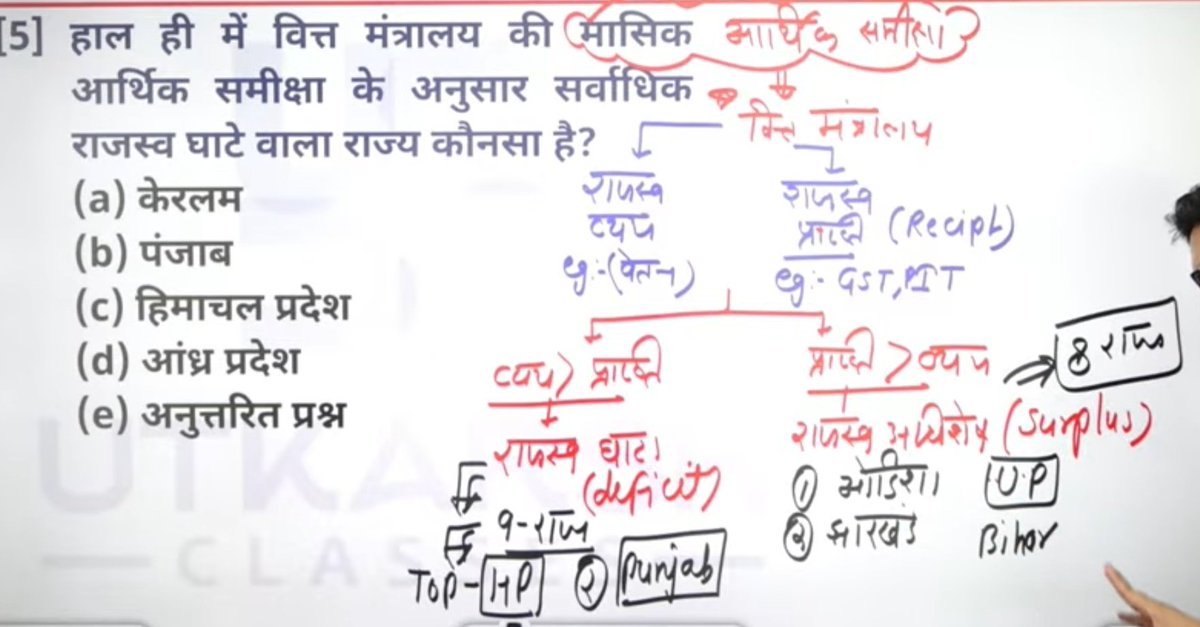 [5] हाल ही में वित्त मंत्रालय की मासिक
आर्थिक समीक्षा के अनुसार सर्वाधिक
राजस्व घाटे वाला राज्य कौनसा है?
(a) केरलम
(b) पंजाब
(c) हिमाचल प्रदेश
(d) आंध्र प्रदेश
(e) अनुत्तरित प्रश्न
आर्थिक समीक्षा
वित्त मंत्रालय
राजस्व
व्यय
eg:-(वेतन)
राजस्व
प्राप्ति (Recipt)
eg:- GST,
व्यय > प्राप्ति
राजस्व घाटा
(deficit)
9-राज्य
Top - HP ② Punjab
प्राप्ति > व्यय
8 राज्य
राजस्व अधिशेष (Surplus)
① ओडिशा UP
② झारखंड Bihar
UTKARSH
CLASSES